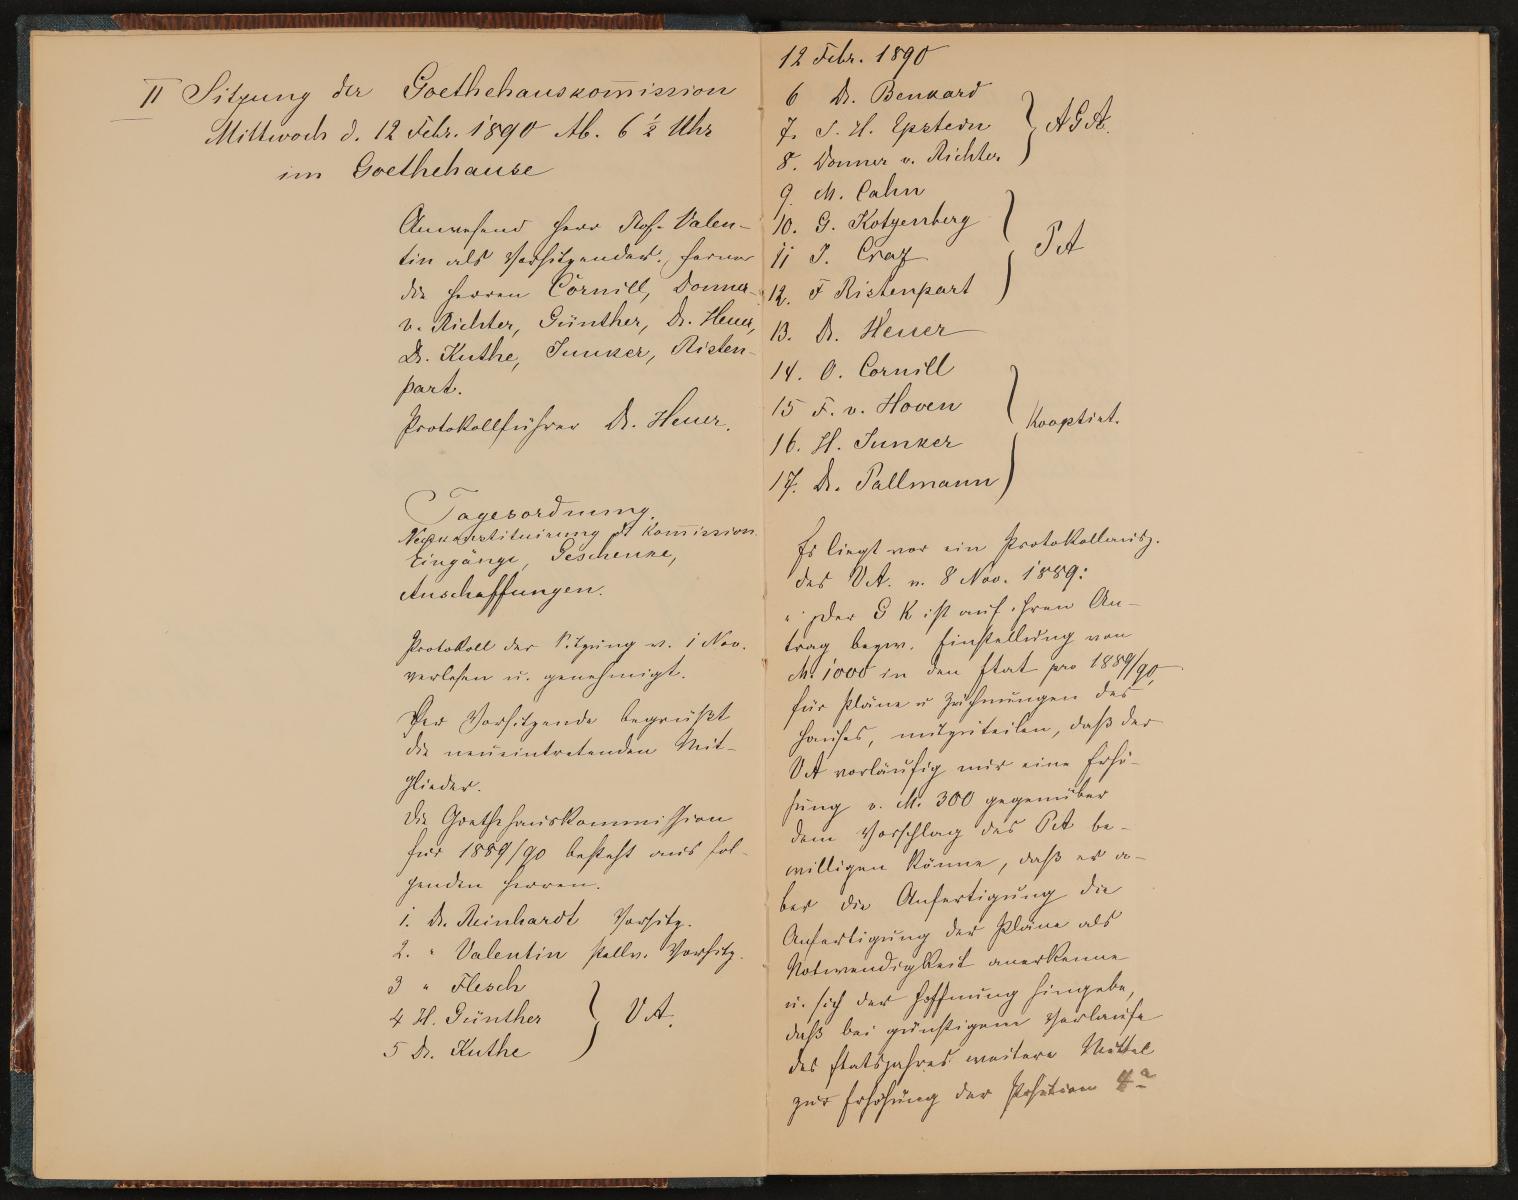 II Sitzung der Goethehauskom̅ission
Mittwoch d. 12 Febr. 1890 Ab. 6 ½ Uhr
im Goethehause
Anwesend Herr Prof. Valen-
tin als Vorsitzender, ferner
die Herren Cornill, Donner-
v. Richter, Günther, Dr. Heuer,
Dr. Kuthe, Junker, Risten-
part.
Protokollführer Dr. Heuer.
Tagesordnung.
Neukonstituirung der Kom̅ission
Eingänge, Geschenke,
Anschaffungen.
Protokoll der Sitzung v. 1 Nov.
verlesen u. genehmigt.
Der Vorsitzende begrüßt
die neueintretenden Mit-
glieder.
Die Goethehauskommission
für 1889/90 besteht aus fol-
genden Herren.
1. Dr. Reinhardt Vorsitz.
2. " Valentin stellv. Vorsitz.
3 " Flesch
4 H. Günther } VA.
5 Dr. Kuthe
12 Febr. 1890
6 Dr. Benkard
7. T. H. Epstein } AGA.
8. Donner v. Richter
9. M. Cahn
10. G. Kotzenberg
11 J. Graf } PA
12. F Ristenpart
13. Dr. Heuer
14. O. Cornill
15 F. v. Hoven } Kooptirt.
16. H. Junker
17. Dr. Pallmann
Es liegt vor ein Protokollausz.
des VA. v. 8 Nov. 1889:
" Der GK ist auf ihren An-
trag bezw. Einstellung von
M. 1000 in den Etat pro 1889/90,
für Pläne u Zeichnungen des
Hauses, mitzuteilen, daß der
VA vorläufig nur eine Erhö-
hung v. M. 300 gegenüber
dem Vorschlag des PA be-
willigen könne, daß er a-
ber die Anfertigung die
Anfertigung der Pläne als
Notwendigkeit anerkenne
u. sich der Hoffnung hingebe,
daß bei günstigem Verlaufe
des Etatsjahres weitere Mittel
zur Erhöhung der Position 4a